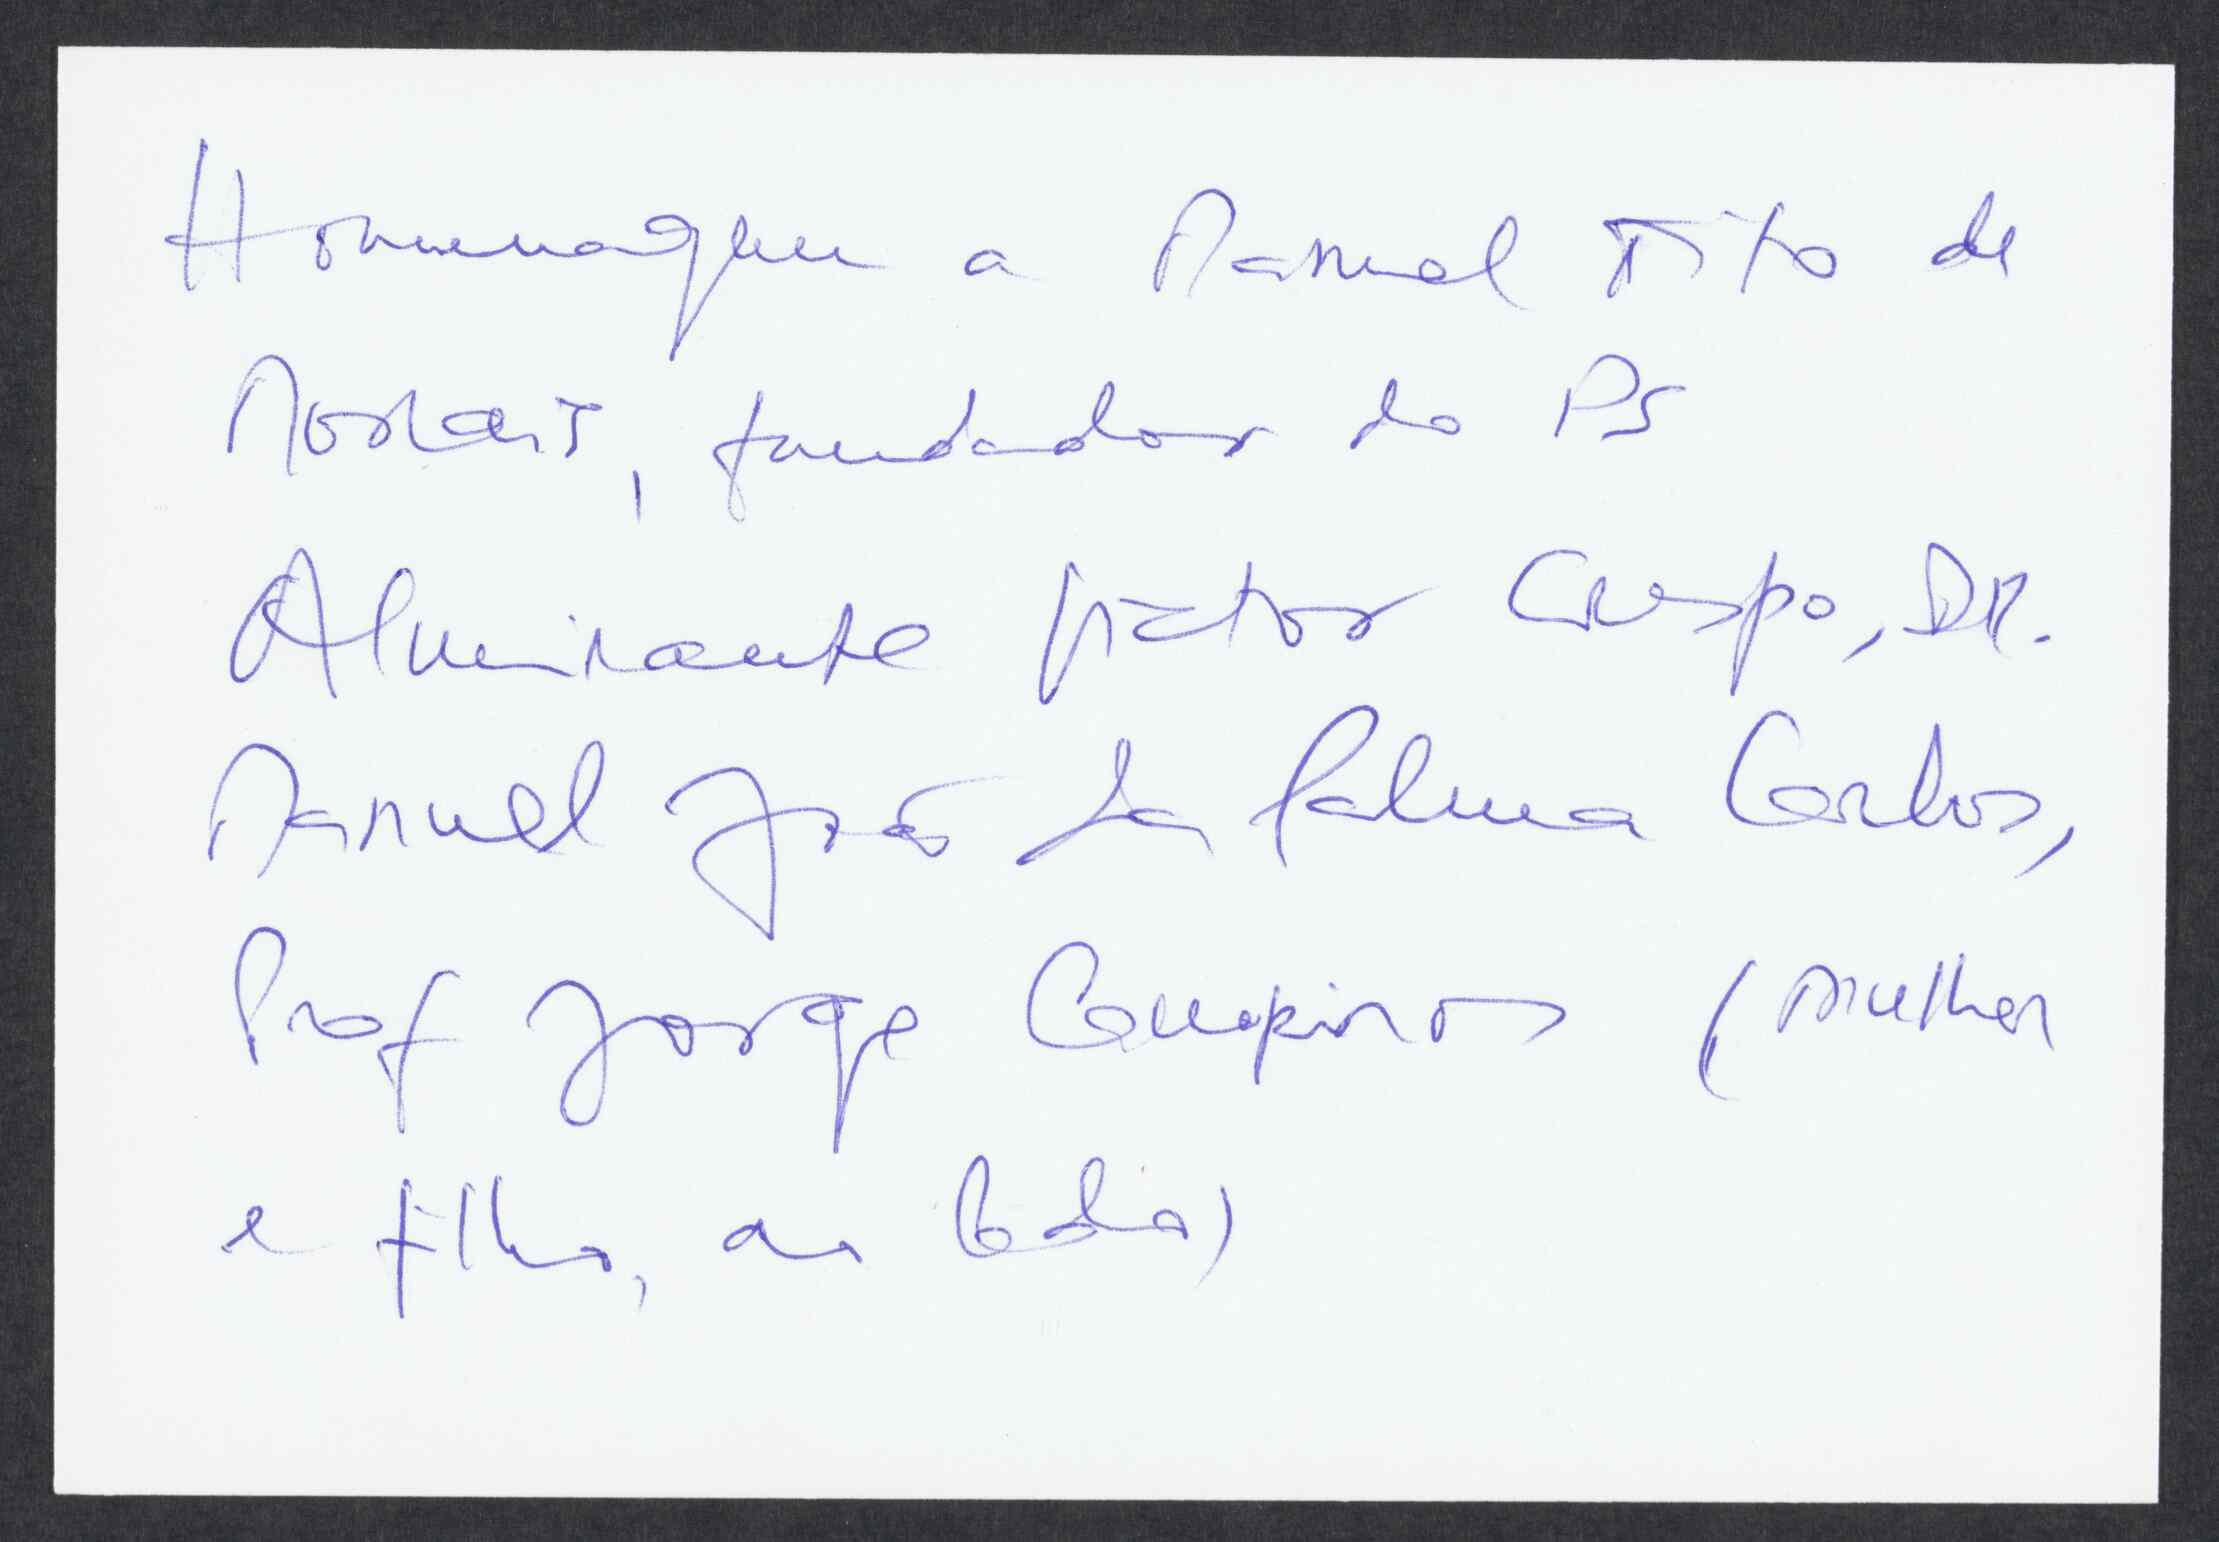 Homenagem a Manuel Tito de
Morais, fundador do PS
Almirante Victor Crespo, Dr.
Manuel João da Palma Carlos,
Prof Jorge Campinos (mulher
e filho,